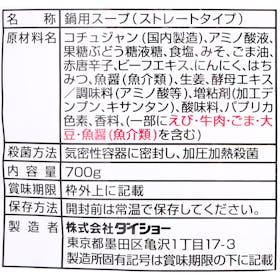 名称 鍋用スープ（ストレートタイプ）
原材料名 コチュジャン（国内製造）、アミノ酸液、
果糖ぶどう糖液糖、食塩、みそ、ごま油、
赤唐辛子、ビーフエキス、にんにく、はち
みつ、魚醤（魚介類）、生姜、酵母エキス
／調味料（アミノ酸等）、増粘剤（加工デ
ンプン、キサンタン）、酸味料、パプリカ
色素、香料、（一部にえび・牛肉・ごま・大
豆・魚醤（魚介類）を含む）
殺菌方法 気密性容器に密封し、加圧加熱殺菌
内容量 700g
賞味期限 枠外上に記載
保存方法 開封前は常温で保存してください。
製造者 株式会社ダイショー
東京都墨田区亀沢1丁目17-3
製造所固有記号は賞味期限の下に記載